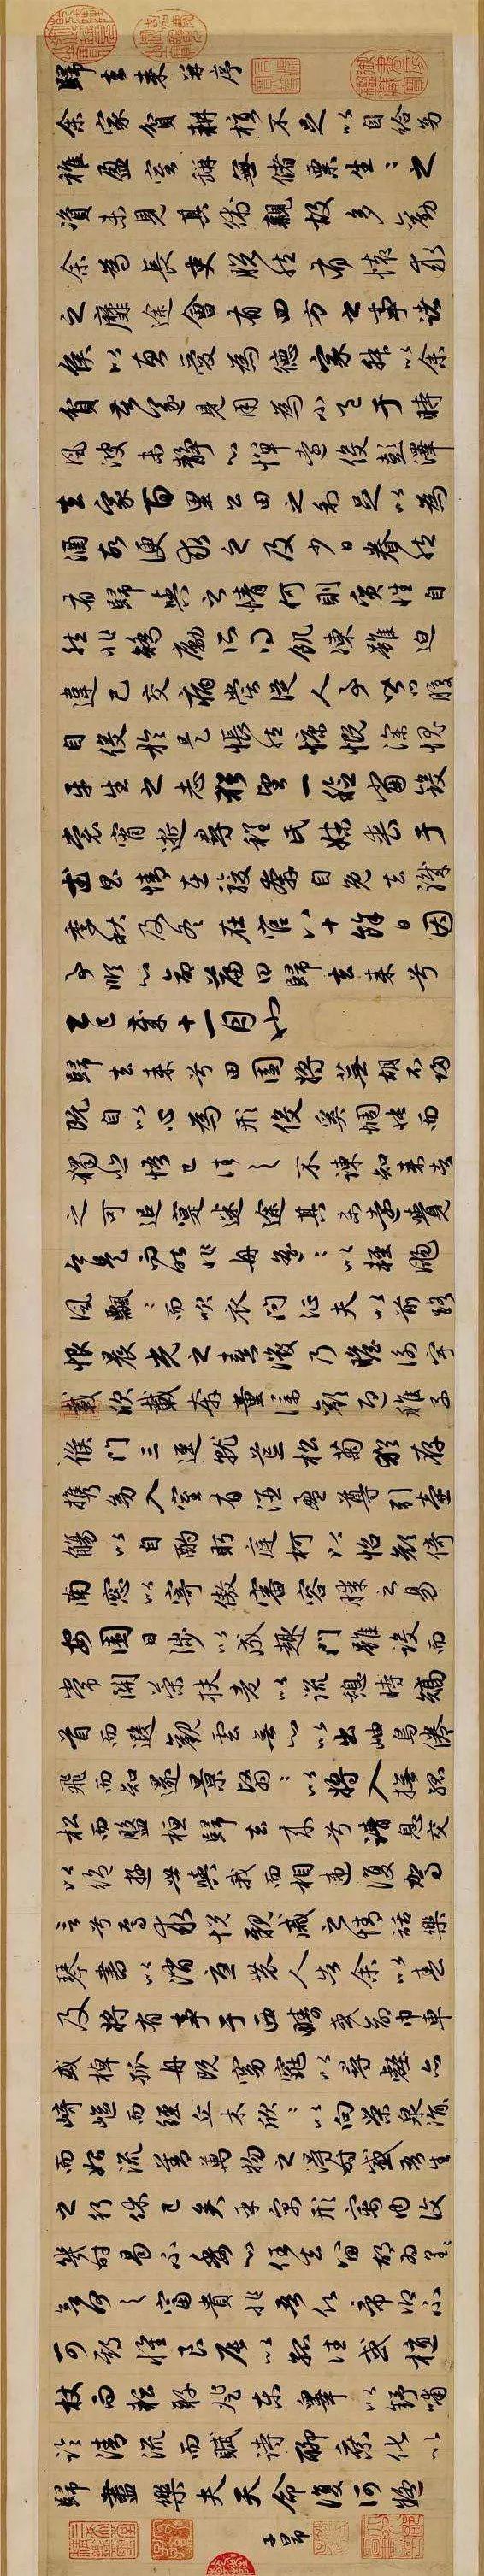 歸去来并序
余家貧耕植不足以自給幼
稚盈室缾無儲粟生〻之
資未見其術親故多勸
余為長吏脫然有懷求
之靡途會有四方之事諸
侯以惠愛為德家叔以余
貧苦遂見用為小邑于時
風波未靜心憚遠役彭澤
去家百里公田之利足以為
酒故便求之及少日眷然
有歸與之情何則質性自
然非矯勵所得飢凍雖迫
違己交病嘗從人事皆口腹
自役於是悵然慷慨深愧
平生之志猶望一稔當斂
裳宵逝尋程氏妹喪于
武昌情在駿奔自免去職
季秋及冬在官八十餘日因
事順心命篇曰歸去来兮
乙巳歲十一月也
歸去来兮田園將蕪胡不歸
既自以心為形役奚惆悵而
獨悲悟已往之不諫知来者
之可追寔迷途其未遠覺
今是而昨非舟遙〻以輕颺
風飄〻而吹衣問征夫以前路
恨晨光之熹微乃瞻衡宇
載欣載奔童僕歡迎稚子
候門三逕就荒松菊猶存
攜幼入室有酒盈尊引壺
觴以自酌眄庭柯以怡顏倚
南窓以寄傲審容膝之易
安園日涉以成趣門雖設而
常關策扶老以流憩時矯
首而遐觀雲無心以出岫鳥倦
飛而知還景翳〻以將入撫孤
松而盤桓歸去来兮請息交
以絶遊世與我而相違復駕
言兮焉求悅親戚之情話樂
琴書以消憂農人告余以春
及將有事于西疇或命巾車
或棹孤舟既窈窕以尋壑亦
崎嶇而經丘木欣〻以向榮泉涓〻
而始流善萬物之得時感吾生
之行休已矣乎寓形宇内復
幾時曷不委心任去留胡為遑〻
欲何之富貴非吾願帝鄉不
可期懷良辰以孤往或植
杖而耘耔登東皋以舒嘯
臨清流而賦詩聊乘化以
歸盡樂夫天命復何疑
子昂